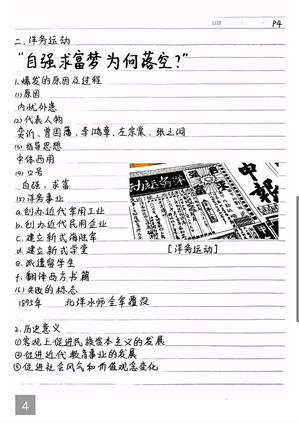 P4
二、洋务运动
"自强求富梦为何落空?"
1.爆发的原因及过程
(1)原因
内忧外患
(2)代表人物
奕䜣、曾国藩、李鸿章、左宗棠、张之洞
(3)指导思想
中体西用
(4)口号
自强、求富
(5)洋务事业
a.创办近代军用工业
b.创办近代民用企业
c.建立新式海陆军
d.建立新式学堂
e.派遣留学生
f.翻译西方书籍
[洋务运动]
申報
(6)失败的标志
1895年 北洋水师全军覆没
2.历史意义
①客观上促进民族资本主义的发展
②促进近代教育事业的发展
③促进社会风气和价值观念变化
4